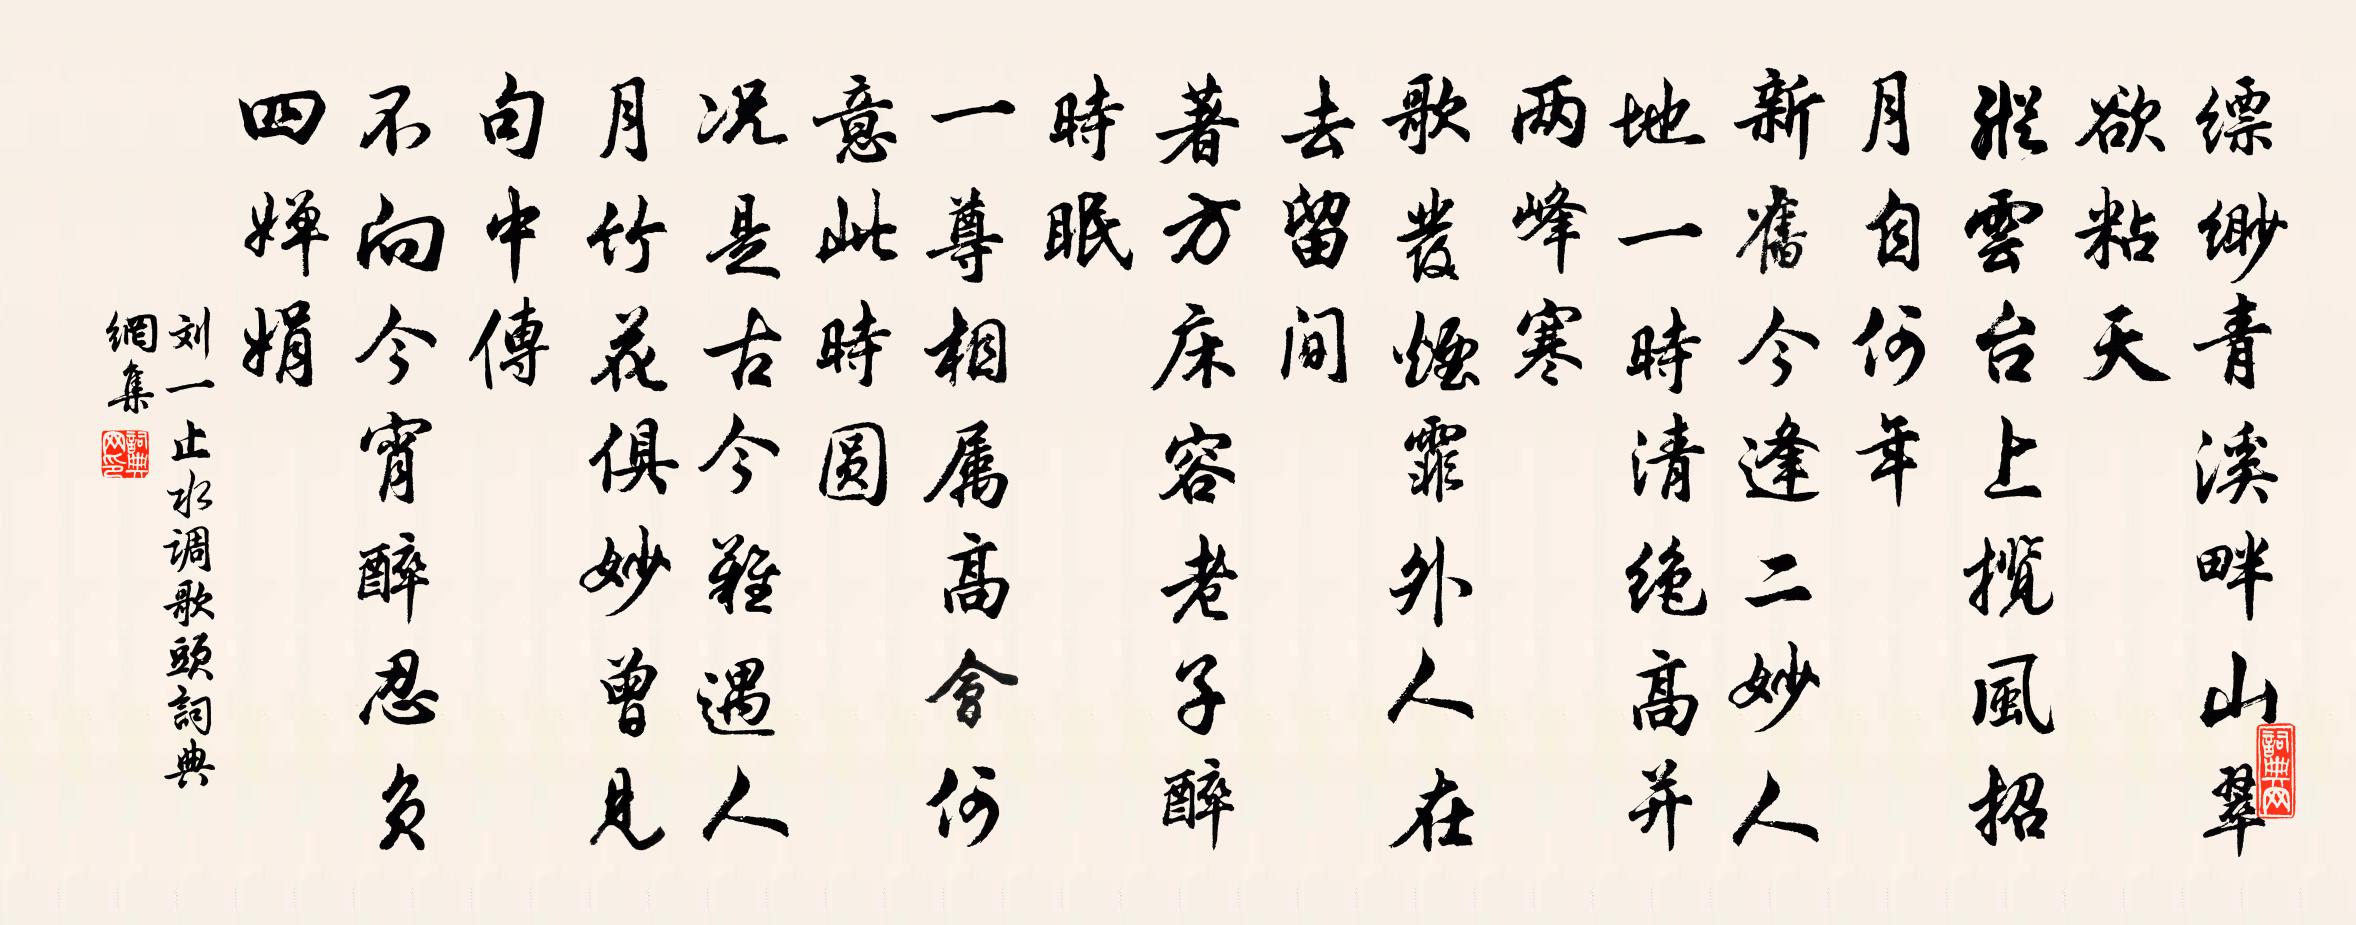 缥缈青溪畔山翠
欲粘天
纵雲台上揽風招
月自何年
新舊今逢二妙人
地一時清绝高并
两峰寒
歌發煙霏外人在
去留间
著方床容老子醉
時眠
一尊相属高會何
意此時圆
况是古今難遇人
月竹花俱妙曾見
句中傳
不向今宵醉忍負
四婵娟
刘一止水调歌頭詞典
網集
詞典網
詞典網印